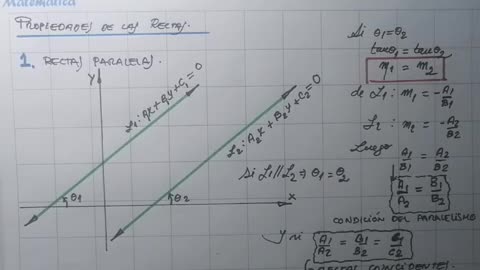 Matemática
PROPIEDADES DE LAS RECTAS.
1. RECTAS PARALELAS.
Y
L1: A1X + B1Y + C1 = 0
L2: A2X + B2Y + C2 = 0
θ1
θ2
X
Si L1 // L2 ⇒ θ1 = θ2
Si θ1 = θ2
tanθ1 = tanθ2
m1 = m2
de L1: m1 = -A1/B1
L2: m2 = -A2/B2
Luego A1/B1 = A2/B2
A1/A2 = B1/B2
CONDICIÓN DEL PARALELISMO
y si A1/A2 = B1/B2 = C1/C2
RECTAS COINCIDENTES.